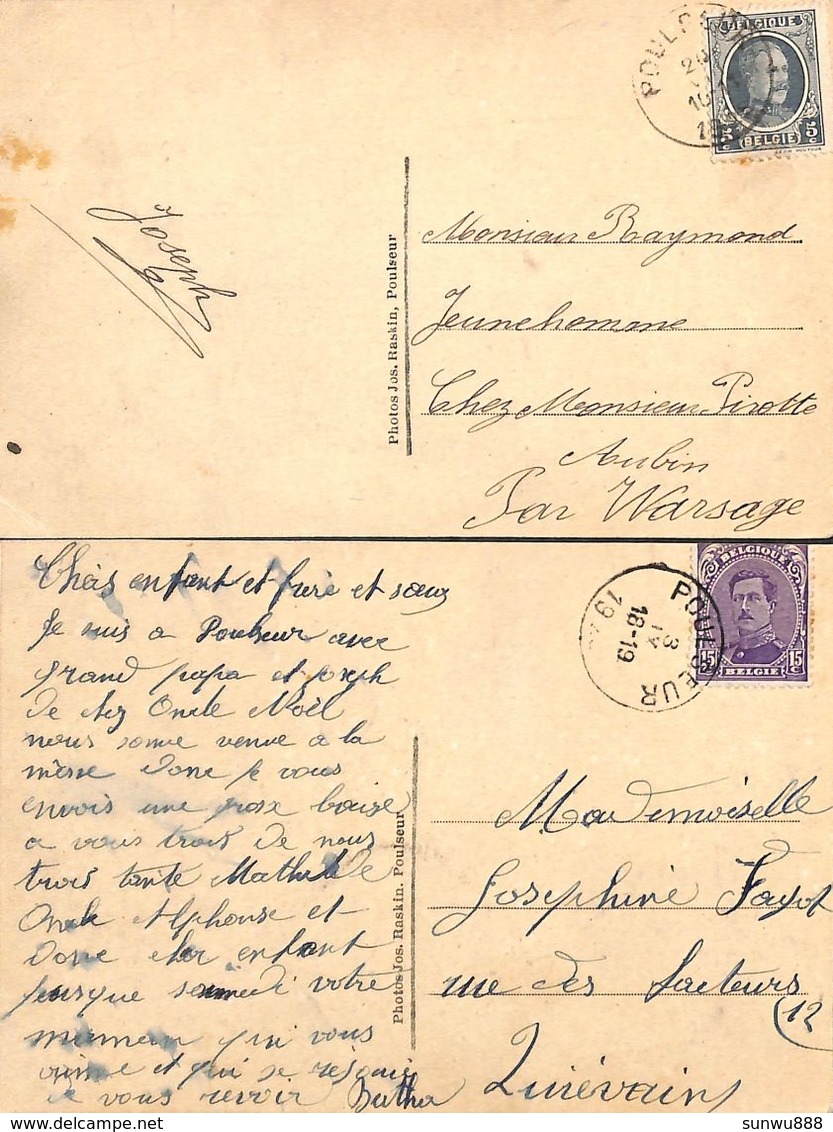 BELGIQUE
5 c 5 c
BELGIE
POULSEUR
Joseph
Photos Jos. Raskin, Poulseur
Monsieur Raymond
Jeunehomme
Chez Monsieur Pirotte
Aubin
Par Warsage
BELGIQUE
15 c 15 c
BELGIE
POULSEUR
3 IX
18-19
19
Chèrs enfant et frère et sœur
Je suis a Poulseur avec
grand papa et joseph
de chez Oncle Noël
nous somme venue a la
messe donc je vous
envois une grosse baise
a vous trois de nous
trois tante Mathilde
Oncle Alphonse et
donc cher enfant
jusque samedi votre
maman qui vous
aime et qui se réjouie
de vous revoir Bertha
Photos Jos. Raskin. Poulseur
Mademoiselle
Josephine Fayot
rue des facteurs
(12
Quiévrain
sunwu888